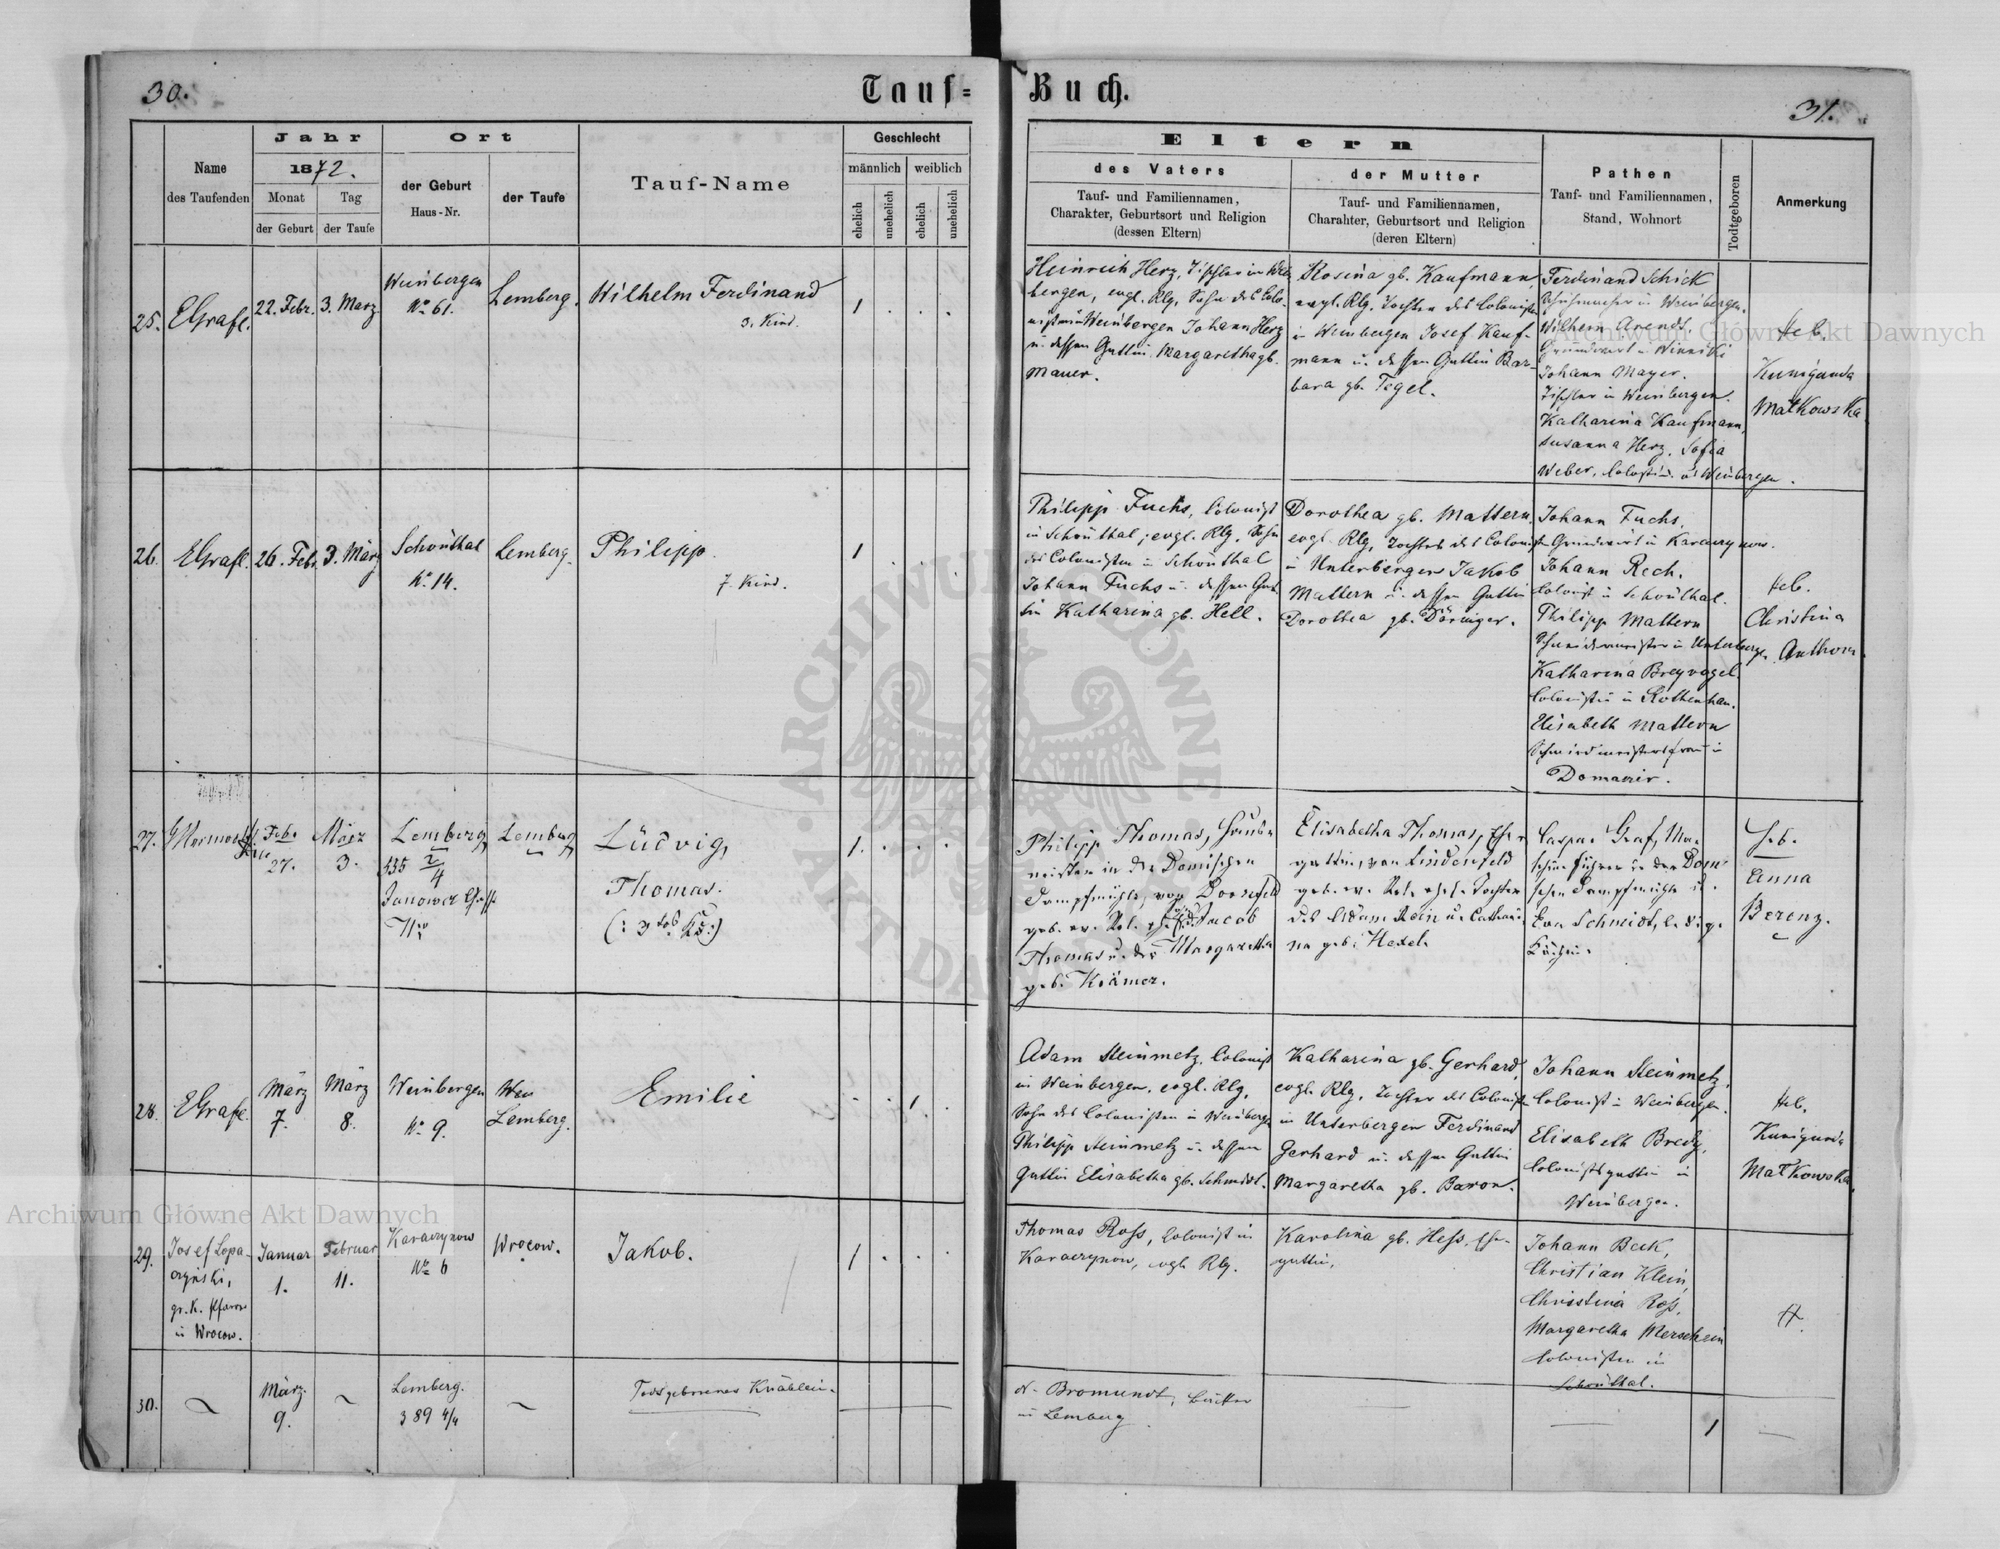 30.
Tauf=
Buch.
31.
Name
des Taufenden
Jahr
1872.
Monat
der Geburt
Tag
der Taufe
Ort
der Geburt
Haus-Nr.
der Taufe
Tauf-Name
Geschlecht
männlich
weiblich
ehelich
unehelich
ehelich
unehelich
Eltern
des Vaters
Tauf- und Familiennamen,
Charakter, Geburtsort und Religion
(dessen Eltern)
der Mutter
Tauf- und Familiennamen,
Charahter, Geburtsort und Religion
(deren Eltern)
Pathen
Tauf- und Familiennamen,
Stand, Wohnort
Todtgeboren
Anmerkung
25.
EGrafl.
22. Febr.
3. März
Weinbergen
No 61.
Lemberg.
Wilhelm Ferdinand
3. Kind.
1
Heinrich Herz, Tischler in Wein
bergen, evgl. Rlg, Sohn des Colo-
nisten in Weinbergen Johann Herz
u. dessen Gattin Margaretha gb.
Mauer.
Rosina gb. Kaufmann,
evgl. Rlg, Tochter des Colonisten
in Weinbergen Josef Kauf-
mann u. dessen Gattin Bar-
bara gb. Tegel.
Ferdinand Schick
Schuhmacher in Weinbergen.
Wilhelm Arendt,
Grundwirt in Winniki
Johann Mayer.
Tischler in Weinbergen.
Katharina Kaufmann,
Susanna Herz, Sofia
Weber, in Weinbergen.
Heb.
Kunigunda
Matkowska
26.
EGrafl.
26. Febr.
3. März
Schönthal
No 14.
Lemberg.
Philipp.
7. Kind.
1
Philipp Fuchs, Colonist
in Schönthal, evgl. Rlg, Sohn
des Colonisten in Schönthal
Johann Fuchs u. dessen Gat-
tin Katharina gb. Hell.
Dorothea gb. Mattern,
evgl. Rlg, Tochter des Colonisten
in Unterbergen Jakob
Mattern u. dessen Gattin
Dorothea gb. Döringer.
Johann Fuchs,
Grundwirt in Karaczynow.
Johann Rech,
Colonist in Schönthal.
Philipp Mattern
Schneidermeister in Unterbergen
Katharina Breyvogel
Colonistin in Rottenhan.
Elisabeth Mattern
Schmiedmeistersfrau in
Domazir.
Heb.
Christina
Anthon.
27.
Febr
27.
März
3.
Lemberg,
535 2/4
Janower Gasse
Lemberg,
Ludvig,
Thomas.
1.
Philipp Thomas,
in der Domischen
Dampfmühle, von Dornfeld
geb. ev. Rel. Jacob
Thomas u. der Margaretha
geb. Krämer.
Elisabetha Thomas, Ehe-
gattin, von Lindenfeld
geb. ev. Rel. ehel. Tochter
des Adam Rein u. Cathari-
na geb. Hexel.
Caspar Graf, Ma-
schinführer in der Dom-
schen Dampfmühle u.
Eva Schmidt, ledige
Köchin.
Heb.
Anna
Berenz.
28.
EGrafl.
März
7.
März
8.
Weinbergen
No 9.
Lemberg.
Emilie
1.
Adam Steinmetz, Colonist
in Weinbergen, evgl. Rlg,
Sohn des Colonisten in Weinbergen
Philipp Steinmetz u. dessen
Gattin Elisabetha gb. Schmidt.
Katharina gb. Gerhard,
evgl. Rlg, Tochter des Colonisten
in Unterbergen Ferdinand
Gerhard u. dessen Gattin
Margaretha gb. Baron.
Johann Steinmetz,
Colonist in Weinbergen.
Elisabeth Bredy,
Colonistsgattin in
Weinbergen.
Heb.
Kunigunda
Matkowska.
29.
Josef Lopa-
czyński,
gr. K. Pfarrer
in Wrocow.
Januar
1.
Februar
11.
Karaczynow
No 6
Wrocow.
Jakob.
1
Thomas Ross, Colonist in
Karaczynow, evgl. Rlg.
Karolina gb. Hess, Ehe-
gattin,
Johann Beck,
Christian Klein,
Christina Ross,
Margaretha Merschein
Colonisten in
Schönthal.
30.
März.
9.
Lemberg.
389 4/4
Todtgeborenes Knäblein.
N. Bromundt,
in Lemberg
1
Archiwum Główne Akt Dawnych
Archiwum Główne Akt Dawnych
ARCHIWUM GŁÓWNE AKT DAWNYCH